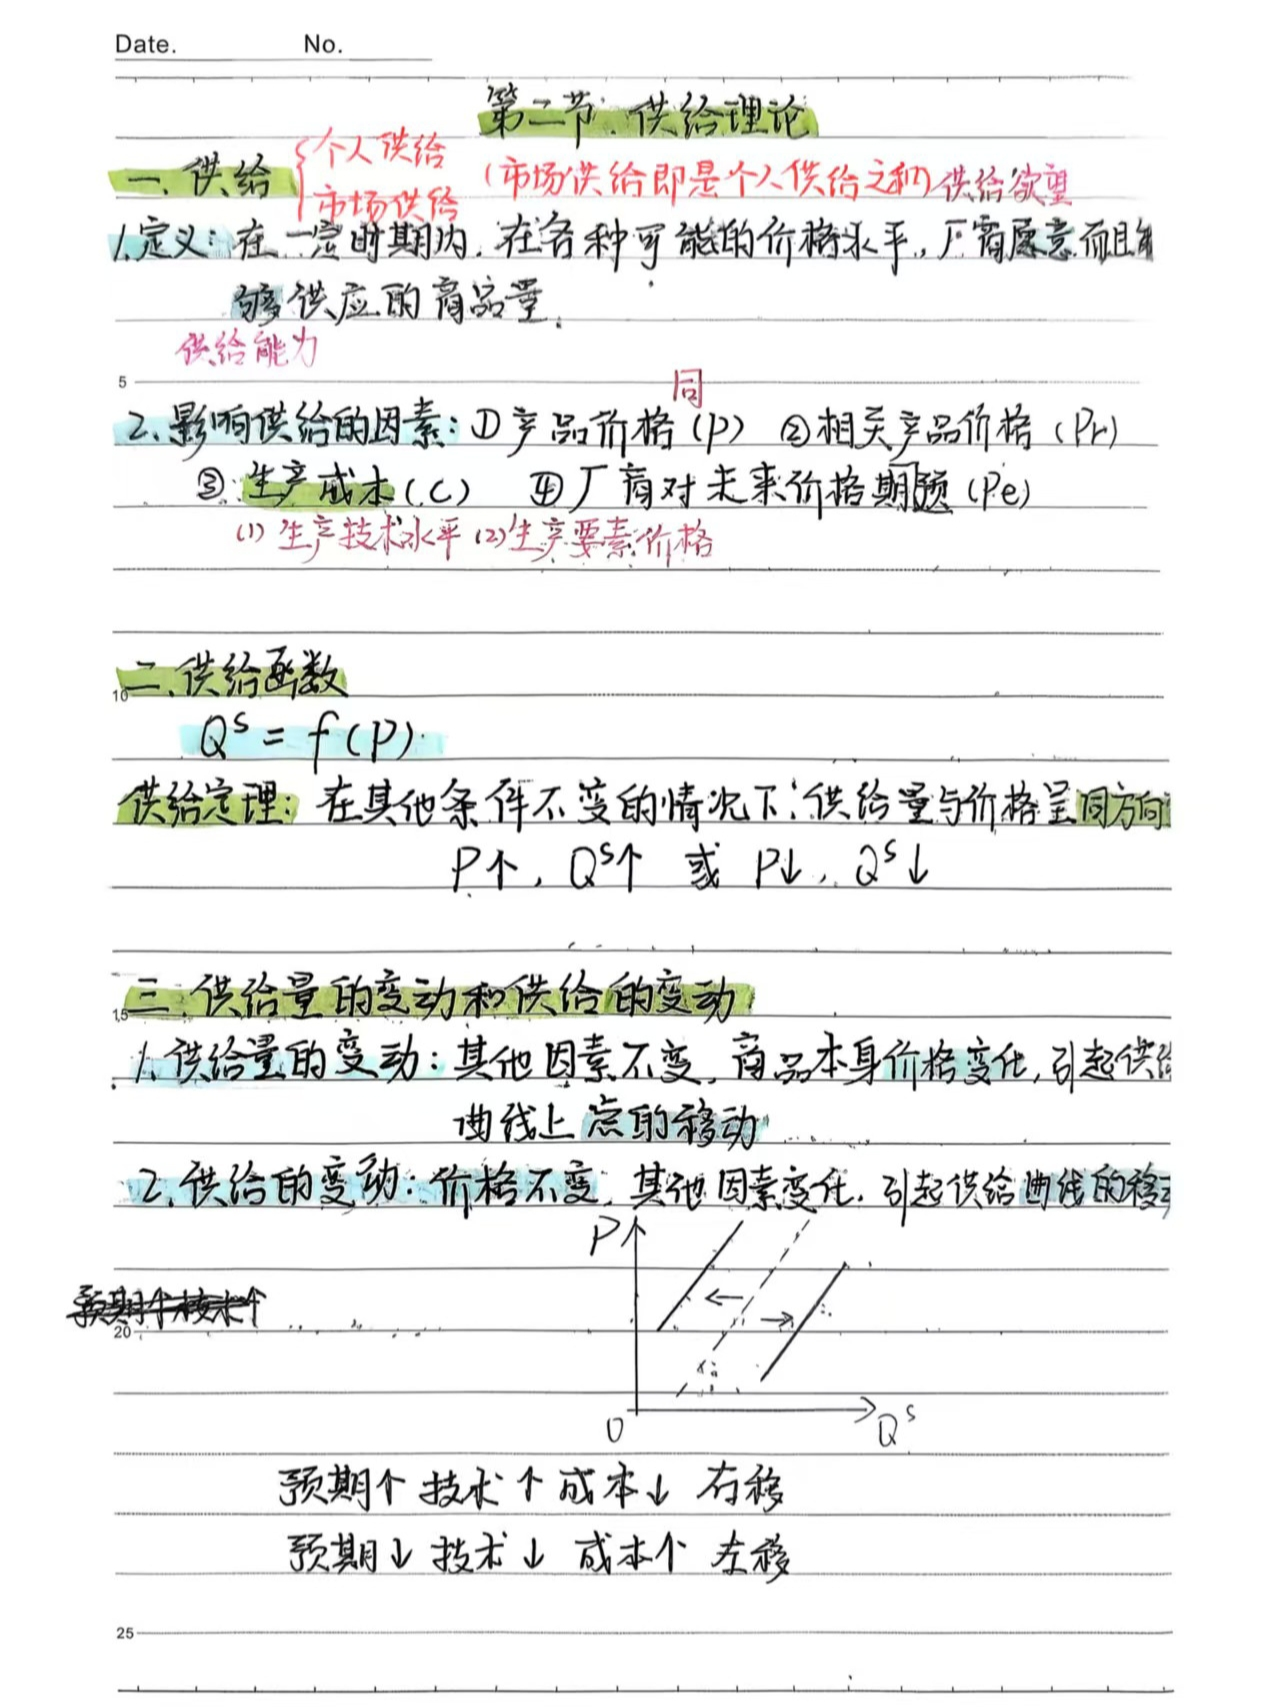 Date. No.
第二节. 供给理论
一. 供给 { 个人供给
市场供给 (市场供给即是个人供给之和) 供给欲望
1. 定义: 在一定时期内, 在各种可能的价格水平, 厂商愿意而且能
够供应的商品量.
供给能力
5
同
2. 影响供给的因素: ① 产品价格 (P) ② 相关产品价格 (Pr)
③ 生产成本 (C) ④ 厂商对未来价格期预 (Pe)
(1) 生产技术水平 (2) 生产要素价格
二. 供给函数
10
Qˢ = f(P)
供给定理: 在其他条件不变的情况下, 供给量与价格呈同方向
P↑, Qˢ↑ 或 P↓, Qˢ↓
三. 供给量的变动和供给的变动
15
1. 供给量的变动: 其他因素不变, 商品本身价格变化, 引起供给
曲线上点的移动
2. 供给的变动: 价格不变, 其他因素变化, 引起供给曲线的移
P
预期个技术个
20
0 Qˢ
预期个 技术↑ 成本↓ 右移
预期↓ 技术↓ 成本个 左移
25